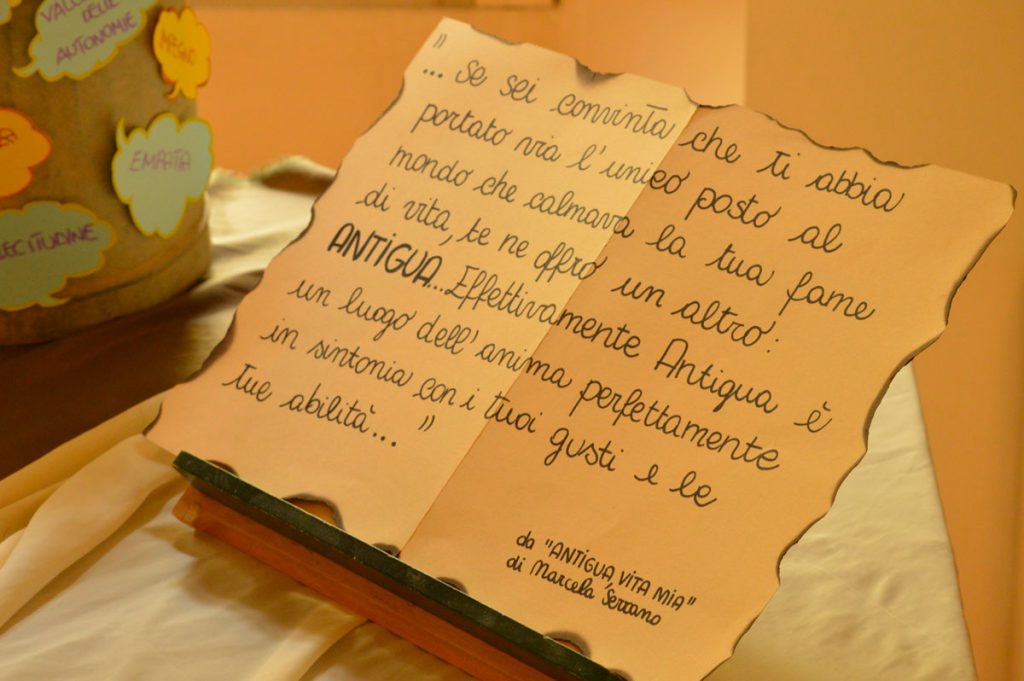 "
... Se sei convinta che ti abbia
portato via l'unico posto al
mondo che calmava la tua fame
di vita, te ne offro un altro:
ANTIGUA... Effettivamente Antigua è
un luogo dell'anima perfettamente
in sintonia con i tuoi gusti e le
tue abilità... "
da "ANTIGUA, VITA MIA"
di Marcela Serrano
DELLE
AUTONOMIE
EMPATIA
LECITUDINE